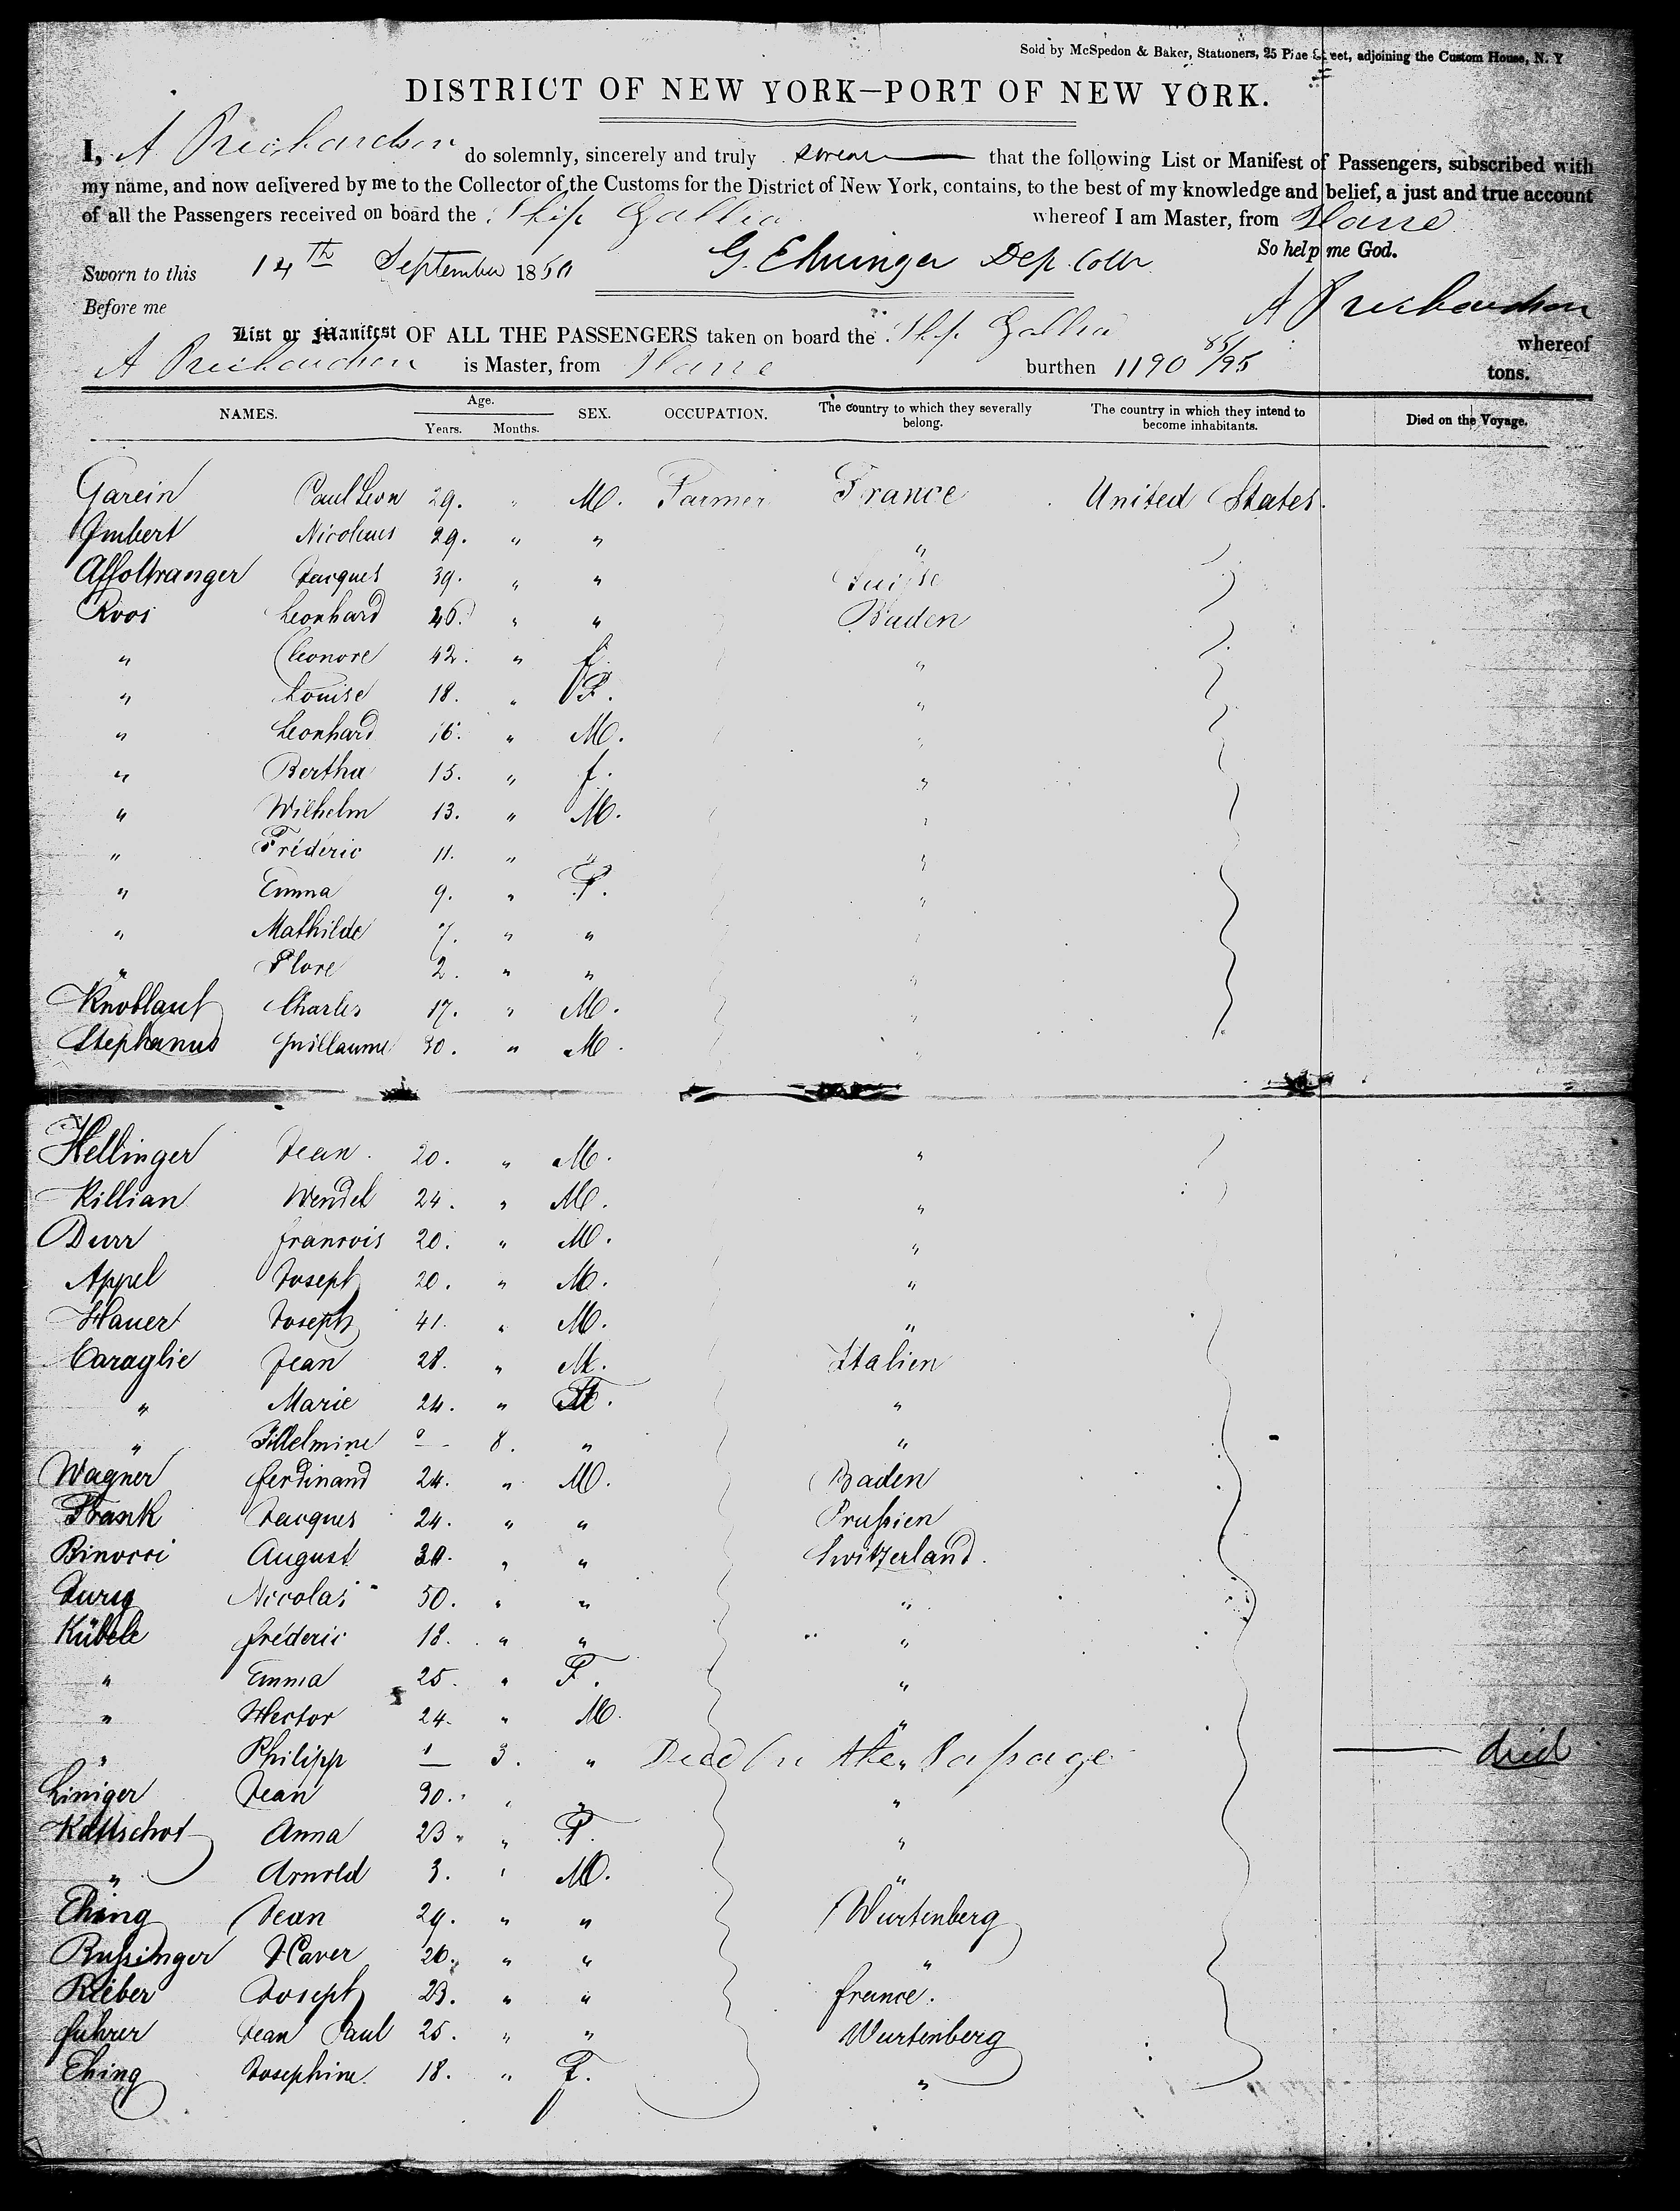 Sold by McSpedon & Baker, Stationers, 25 Pine Street, adjoining the Custom House, N. Y
DISTRICT OF NEW YORK—PORT OF NEW YORK.
I, A Richardson do solemnly, sincerely and truly swear that the following List or Manifest of Passengers, subscribed with
my name, and now delivered by me to the Collector of the Customs for the District of New York, contains, to the best of my knowledge and belief, a just and true account
of all the Passengers received on board the Ship Gallia whereof I am Master, from Havre
So help me God.
Sworn to this 14th September 1850 G. Ehninger Dep. Collr
Before me A Richardson
List or Manifest OF ALL THE PASSENGERS taken on board the Ship Gallia whereof
A Richardson is Master, from Havre burthen 1190 85/95 tons.
NAMES. Age. Years. Months. SEX. OCCUPATION. The country to which they severally belong. The country in which they intend to become inhabitants. Died on the Voyage.
Garein Paul Leon 29. " M. Farmer France United States.
Imbert Nicolaus 29. " " "
Affoltranger Jacques 39. " " Suisse
Roos Leonhard 46. " " Baden
" Eleonore 42. " f. "
" Louise 18. " F. "
" Leonhard 16. " M. "
" Bertha 15. " f. "
" Wilhelm 13. " M. "
" Fréderic 11. " " "
" Emma 9. " F. "
" Mathilde 7. " " "
" Flore 2. " " "
Knoblaut Charles 17. " M. "
Stephanus Guillaume 30. " M. "
Hellinger Jean. 20. " M. "
Killian Wendel 24. " M. "
Durr francois 20. " M. "
Appel Joseph 20. " M. "
Hauer Joseph 41. " M. "
Caraglie Jean 28. " M. Italien
" Marie 24. " F. "
" Fillelmine 0 8. " "
Wagner ferdinand 24. " M. Baden
Frank Jacques 24. " " Prußien
Binocci August " " Switzerland.
Jurig Nicolas 50. " " "
Kübele fréderic 18. " " "
" Emma 25. " F. "
" Hector 24. " M. "
" Philipp — 3. " Died On the Paßage " died
Liniger Jean 30. " " "
Kattschot Anna 23 " F. "
" Arnold 3. " M. "
Ehing Jean 29. " " Würtenberg
Bußinger Xaver 26. " " "
Rieber Joseph 23. " " france.
fuhrer Jean Paul 25. " " Wurtenberg
Ehing Josephine. 18. " F. "